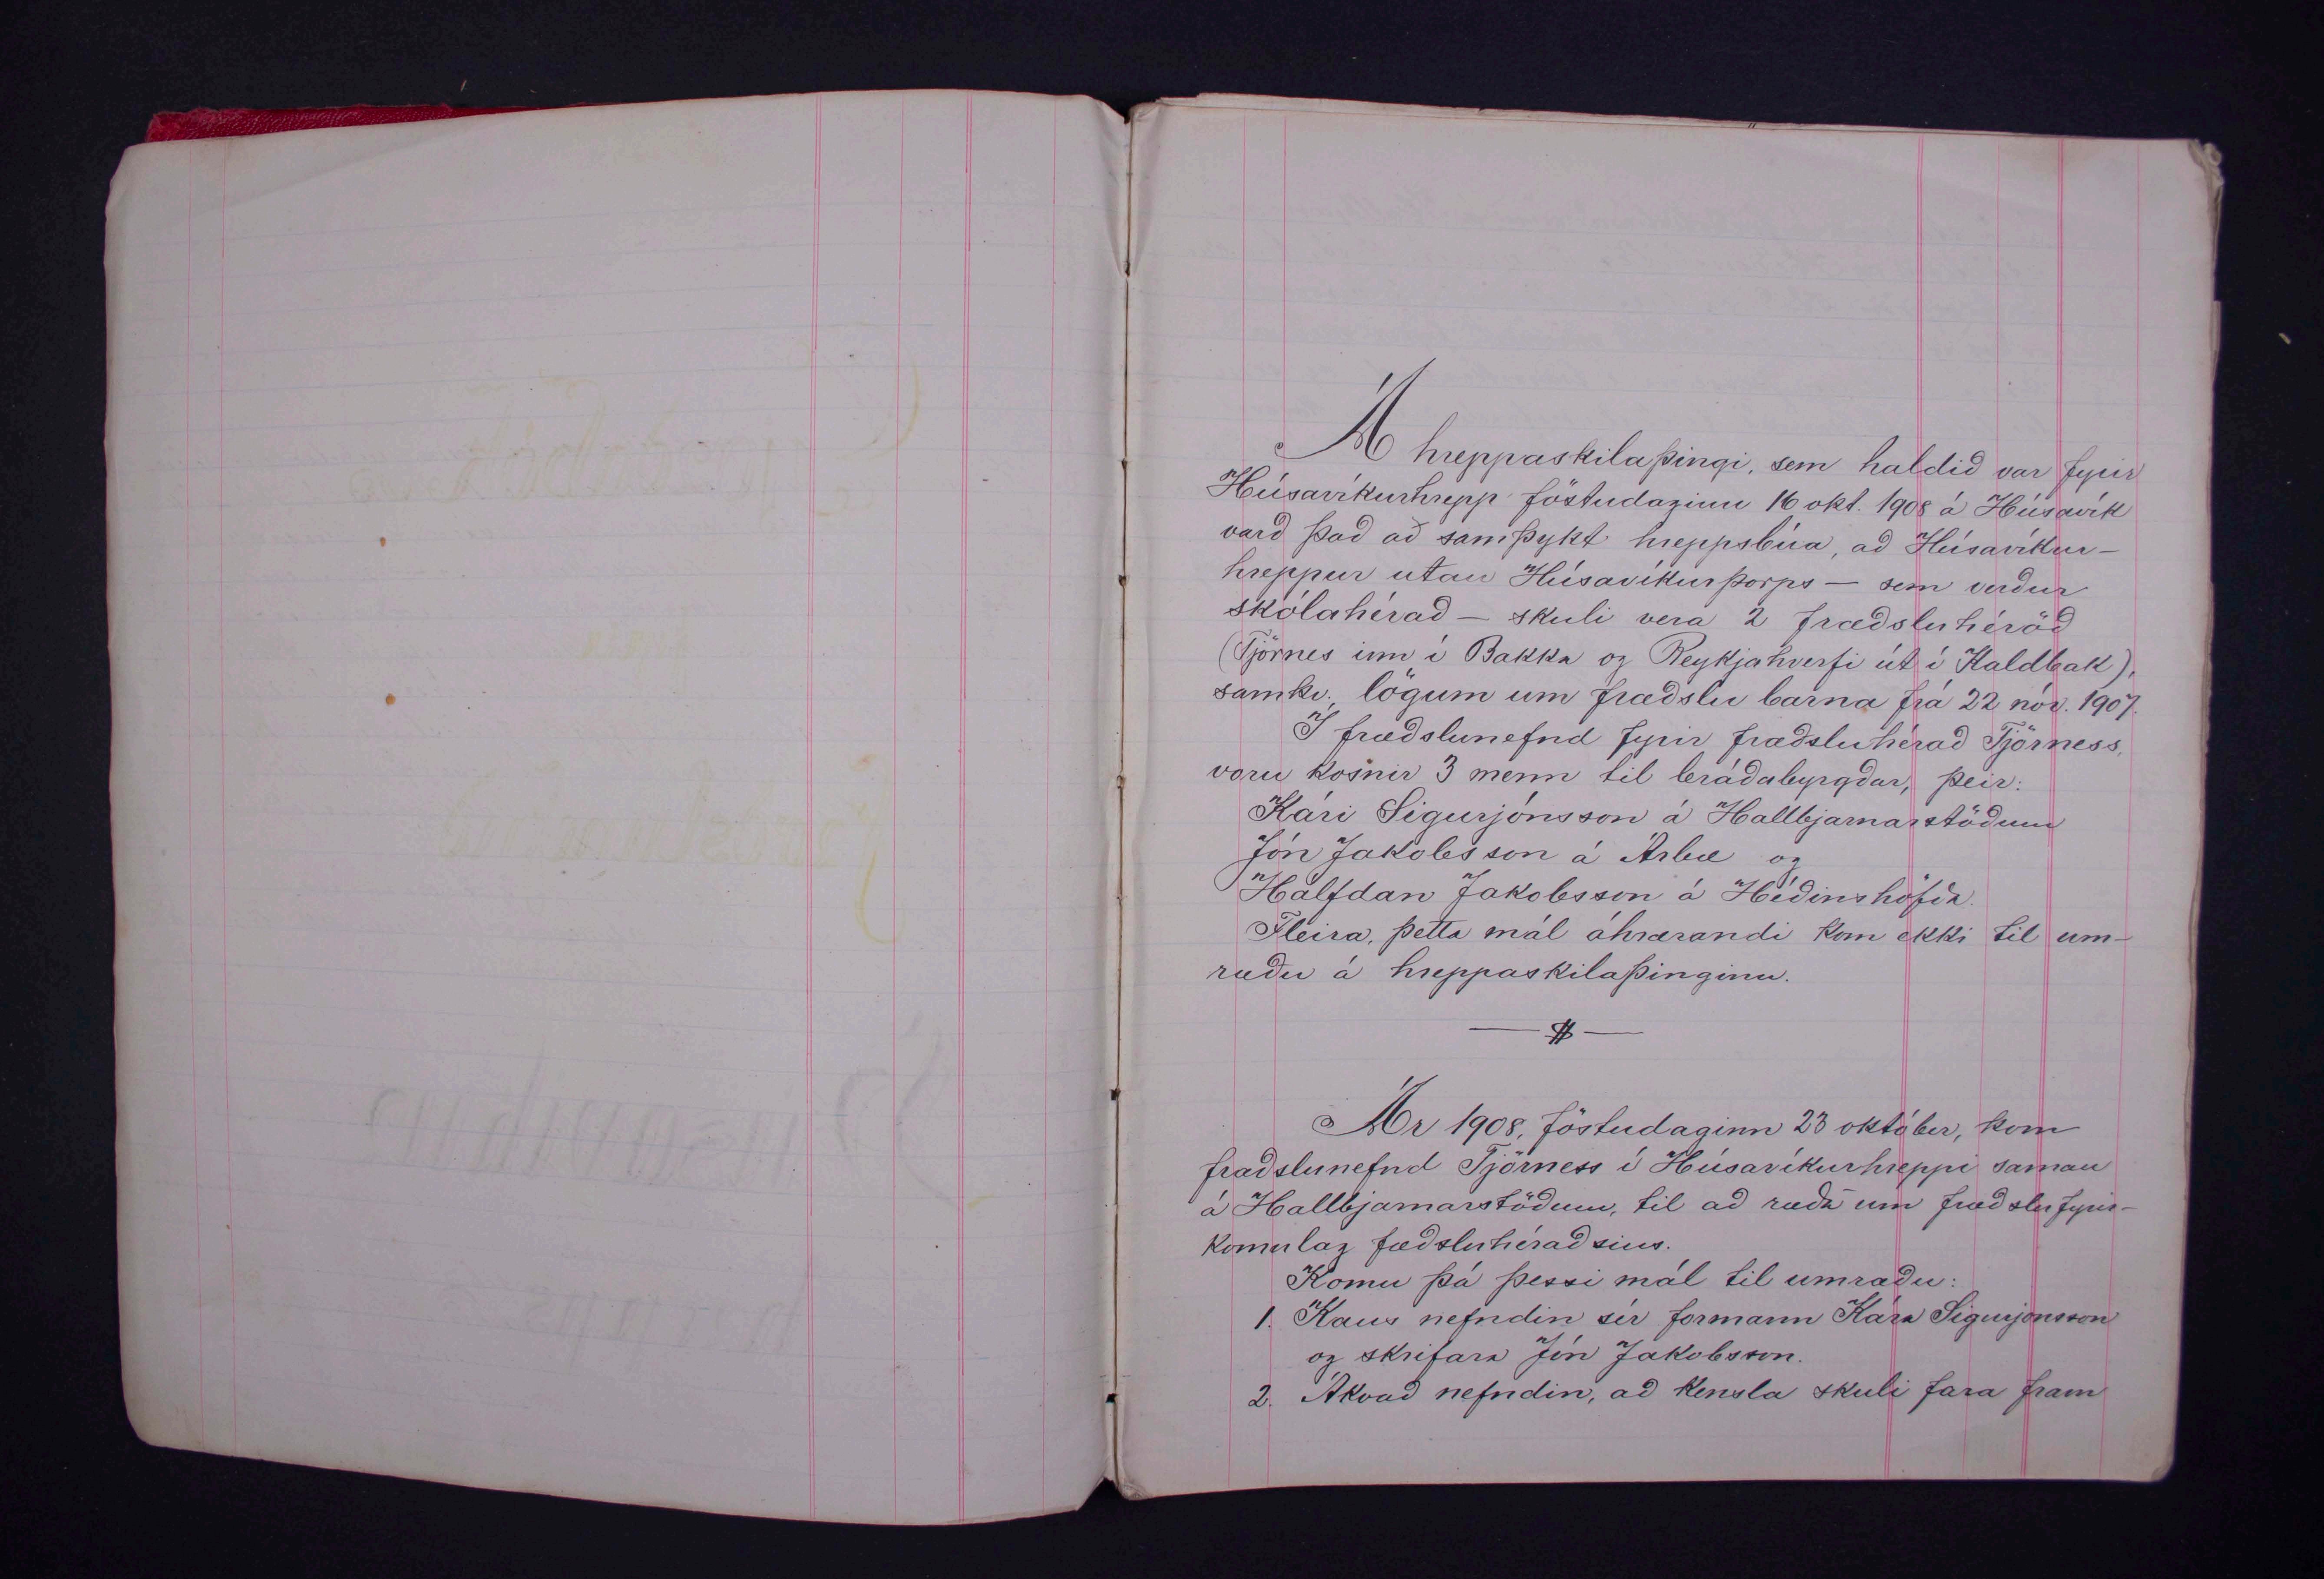 Á hreppaskilaþingi, sem haldið var fyrir
Húsavíkurhrepp föstudaginn 16 okt. 1908 á Húsavík
varð það að samþykt hreppsbúa, að Húsavíkur-
hreppur utan Húsavíkurþorps — sem verður
skólahérað — skuli vera 2 fræðsluhéröð
(Tjörnes inn í Bakka og Reykjahverfi út í Kaldbak),
samkv. lögum um fræðslu barna frá 22 nóv. 1907.
Í fræðslunefnd fyrir fræðsluhérað Tjörness,
voru kosnir 3 menn til bráðabyrgðar, þeir:
Kári Sigurjónsson á Hallbjarnarstöðum
Jón Jakobsson á Árbæ og
Hálfdan Jakobsson á Héðinshöfða.
Fleira, þetta mál áhrærandi kom ekki til um-
ræðu á hreppaskilaþinginu.
Ár 1908, föstudaginn 23 október, kom
fræðslunefnd Tjörness í Húsavíkurhreppi saman
á Hallbjarnarstöðum, til að ræða um fræðslufyrir-
komulag fæðsluhéraðsins.
Komu þá þessi mál til umræðu:
1. Kaus nefndin sér formann Kára Sigurjónsson
og skrifara Jón Jakobsson.
2. Ákvað nefndin, að kensla skuli fara fram